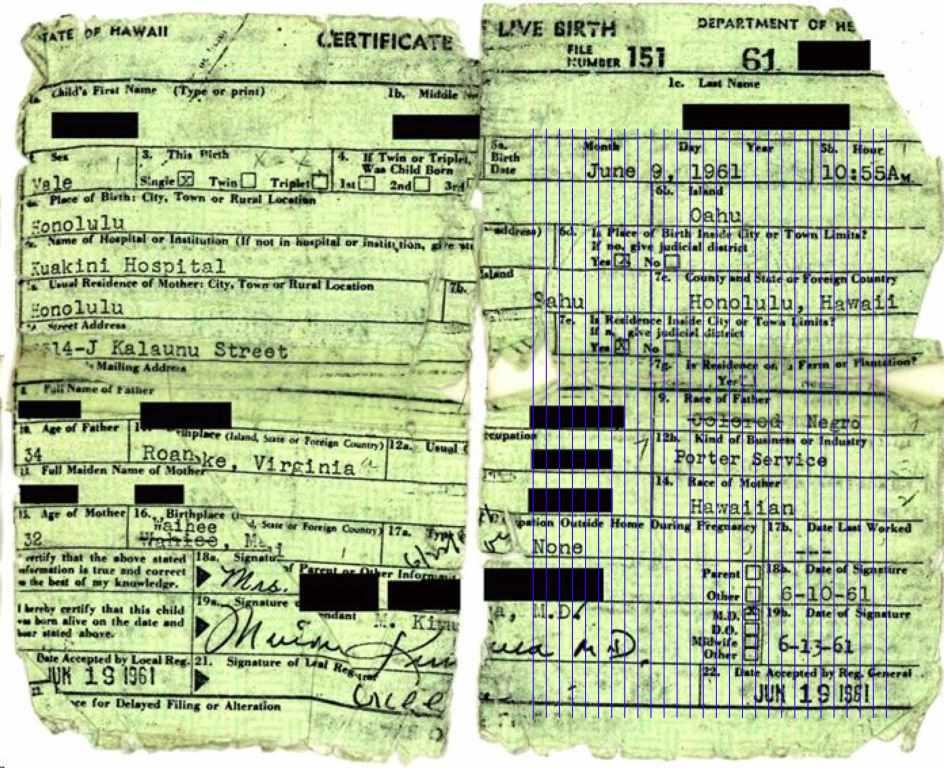 STATE OF HAWAII CERTIFICATE LIVE BIRTH DEPARTMENT OF HE
FILE NUMBER 151 61
1a. Child's First Name (Type or print) 1b. Middle 1c. Last Name
2. Sex 3. This Birth 4. If Twin or Triplet, Was Child Born 5a. Birth Date Month Day Year 5b. Hour
Male Single X Twin Triplet 1st 2nd 3rd June 9, 1961 10:55A M.
6a. Place of Birth: City, Town or Rural Location 6b. Island
Honolulu Oahu
Name of Hospital or Institution (If not in hospital or institution, give address) 6d. Is Place of Birth Inside City or Town Limits?
If no, give judicial district
Kuakini Hospital Yes X No
7a. Usual Residence of Mother: City, Town or Rural Location 7b. Island 7c. County and State or Foreign Country
Honolulu Oahu Honolulu, Hawaii
Street Address 7e. Is Residence Inside City or Town Limits?
If no, give judicial district
14-J Kalaunu Street Yes X No
Mailing Address 7g. Is Residence on a Farm or Plantation?
Yes
8. Full Name of Father 9. Race of Father
Colored Negro
10. Age of Father 11. Birthplace (Island, State or Foreign Country) 12a. Usual Occupation 12b. Kind of Business or Industry
34 Roanoke, Virginia Porter Service
13. Full Maiden Name of Mother 14. Race of Mother
Hawaiian
15. Age of Mother 16. Birthplace (Island, State or Foreign Country) 17a. Type Occupation Outside Home During Pregnancy 17b. Date Last Worked
Waihee
32 Maui None ---
certify that the above stated information is true and correct to the best of my knowledge. 18a. Signature of Parent or Other Informant Parent Other 18b. Date of Signature
Mrs. 6-10-61
I hereby certify that this child was born alive on the date and hour stated above. 19a. Signature of Attendant M.D. X D.O. Midwife Other 19b. Date of Signature
M. Ki M.D. 6-13-61
Date Accepted by Local Reg. 21. Signature of Local Registrar 22. Date Accepted by Reg. General
JUN 19 1961 JUN 19 1961
for Delayed Filing or Alteration